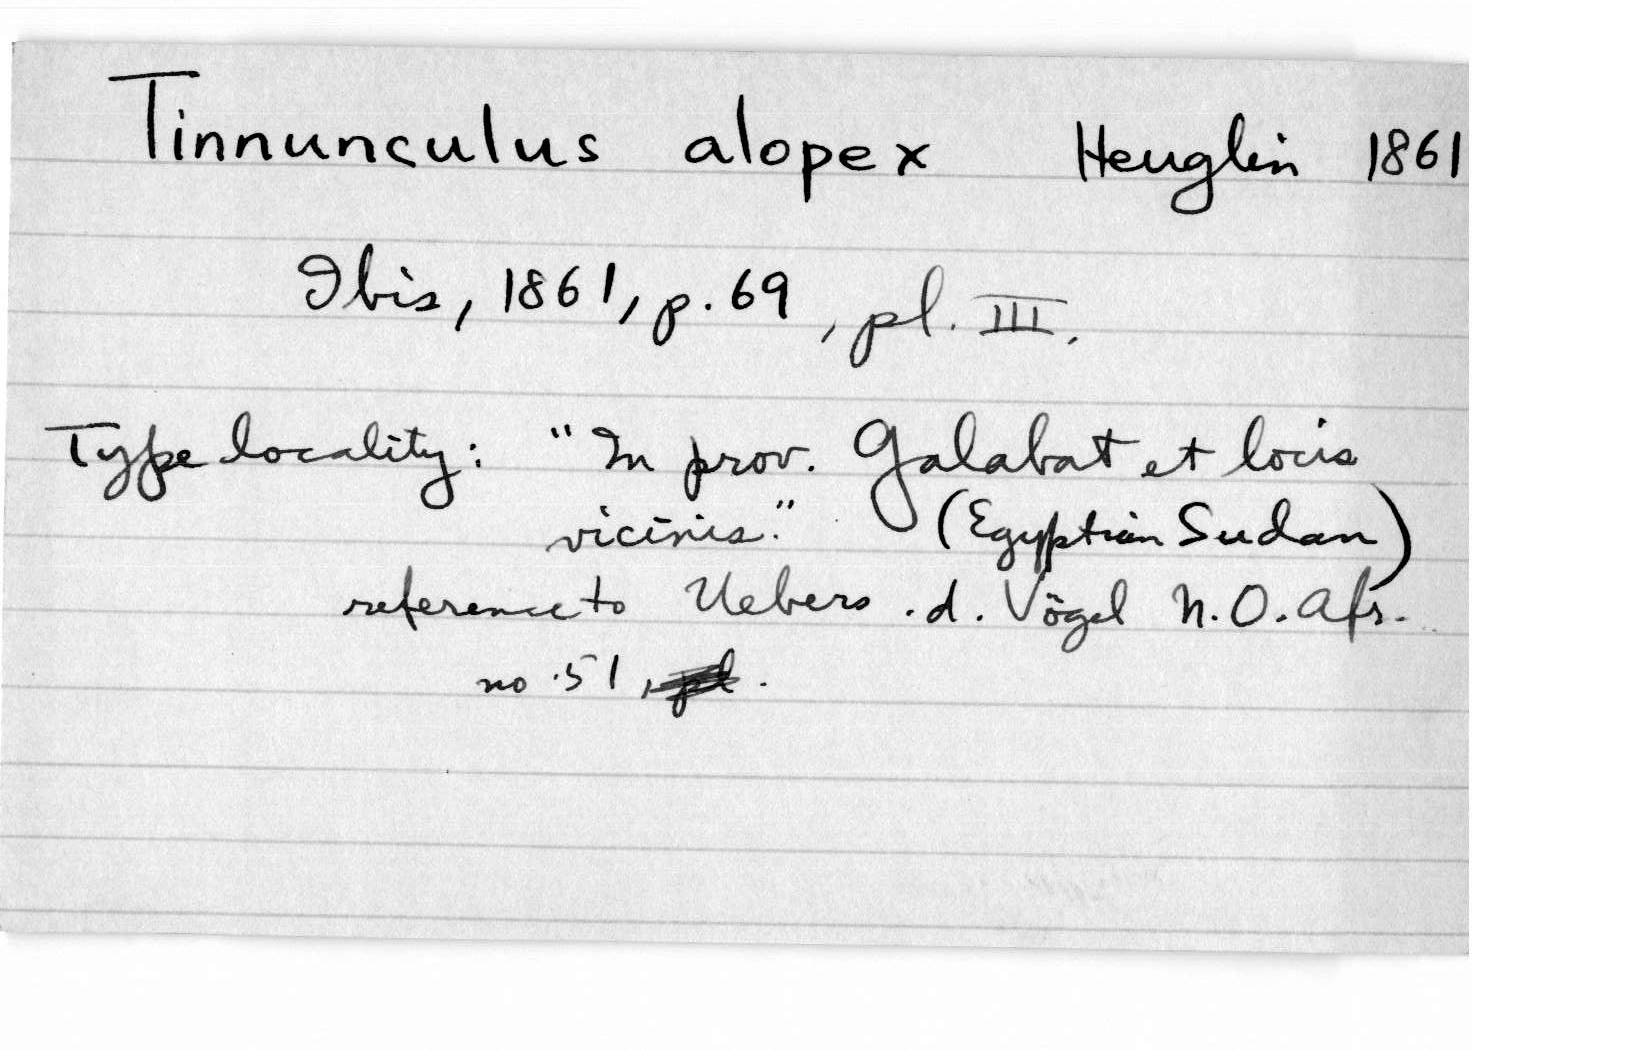 Tinnunculus alopex Heuglin 1861
Ibis, 1861, p. 69, pl. III.
Type locality: "In prov. Galabat et locis
vicinis." (Egyptian Sudan)
reference to Uebers. d. Vögel N.O. Afr.
no. 51, pl.